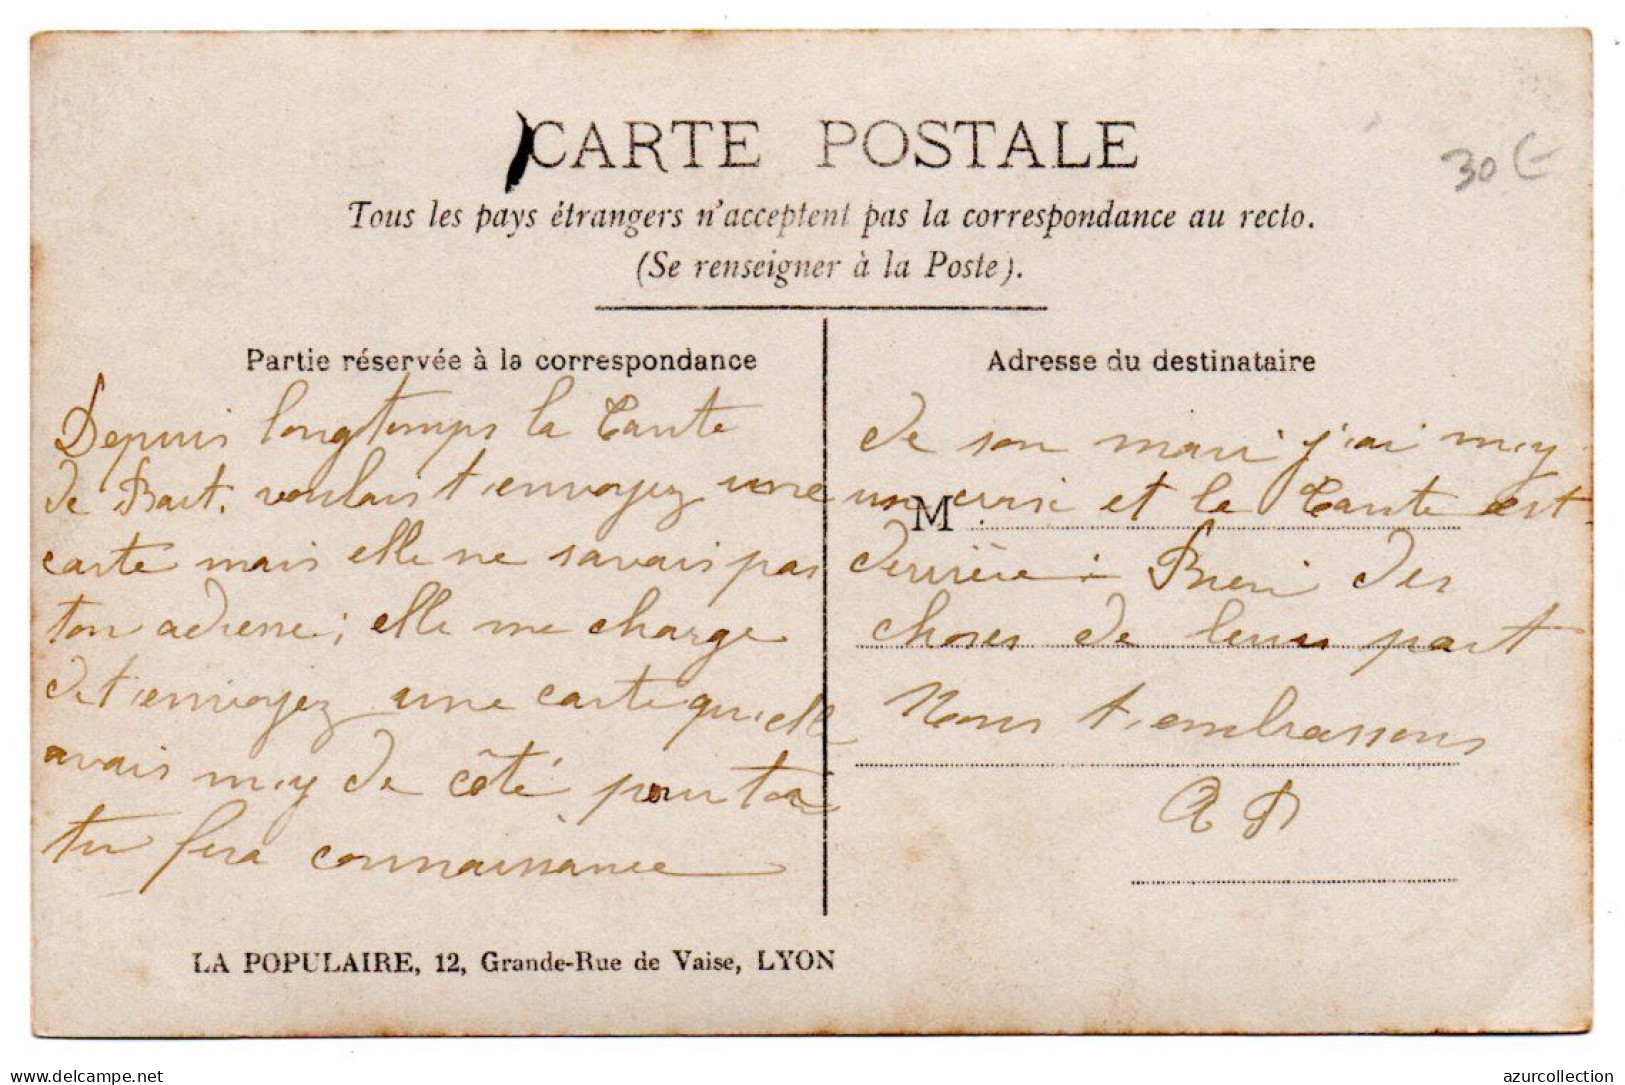 CARTE POSTALE
30 €
Tous les pays étrangers n'acceptent pas la correspondance au recto.
(Se renseigner à la Poste).
Partie réservée à la correspondance
Depuis longtemps la Tante
de voulais t'envoyez une
carte mais elle ne savais pas
ton adresse; elle me charge
de t'envoyez une carte qu'elle
avais m,y de côté pour toi
tu fera connaissance
LA POPULAIRE, 12, Grande-Rue de Vaise, LYON
Adresse du destinataire
de son mari j'ai m,y
M
une et la Tante est
derrière: Bien des
choses de leurs part
Nous t'embrassons
www.delcampe.net
azurcollection